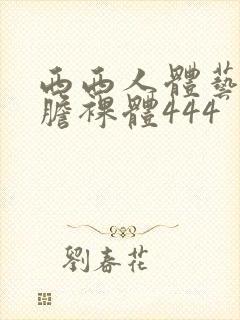 西西人體藝
膽裸體444
劉春花